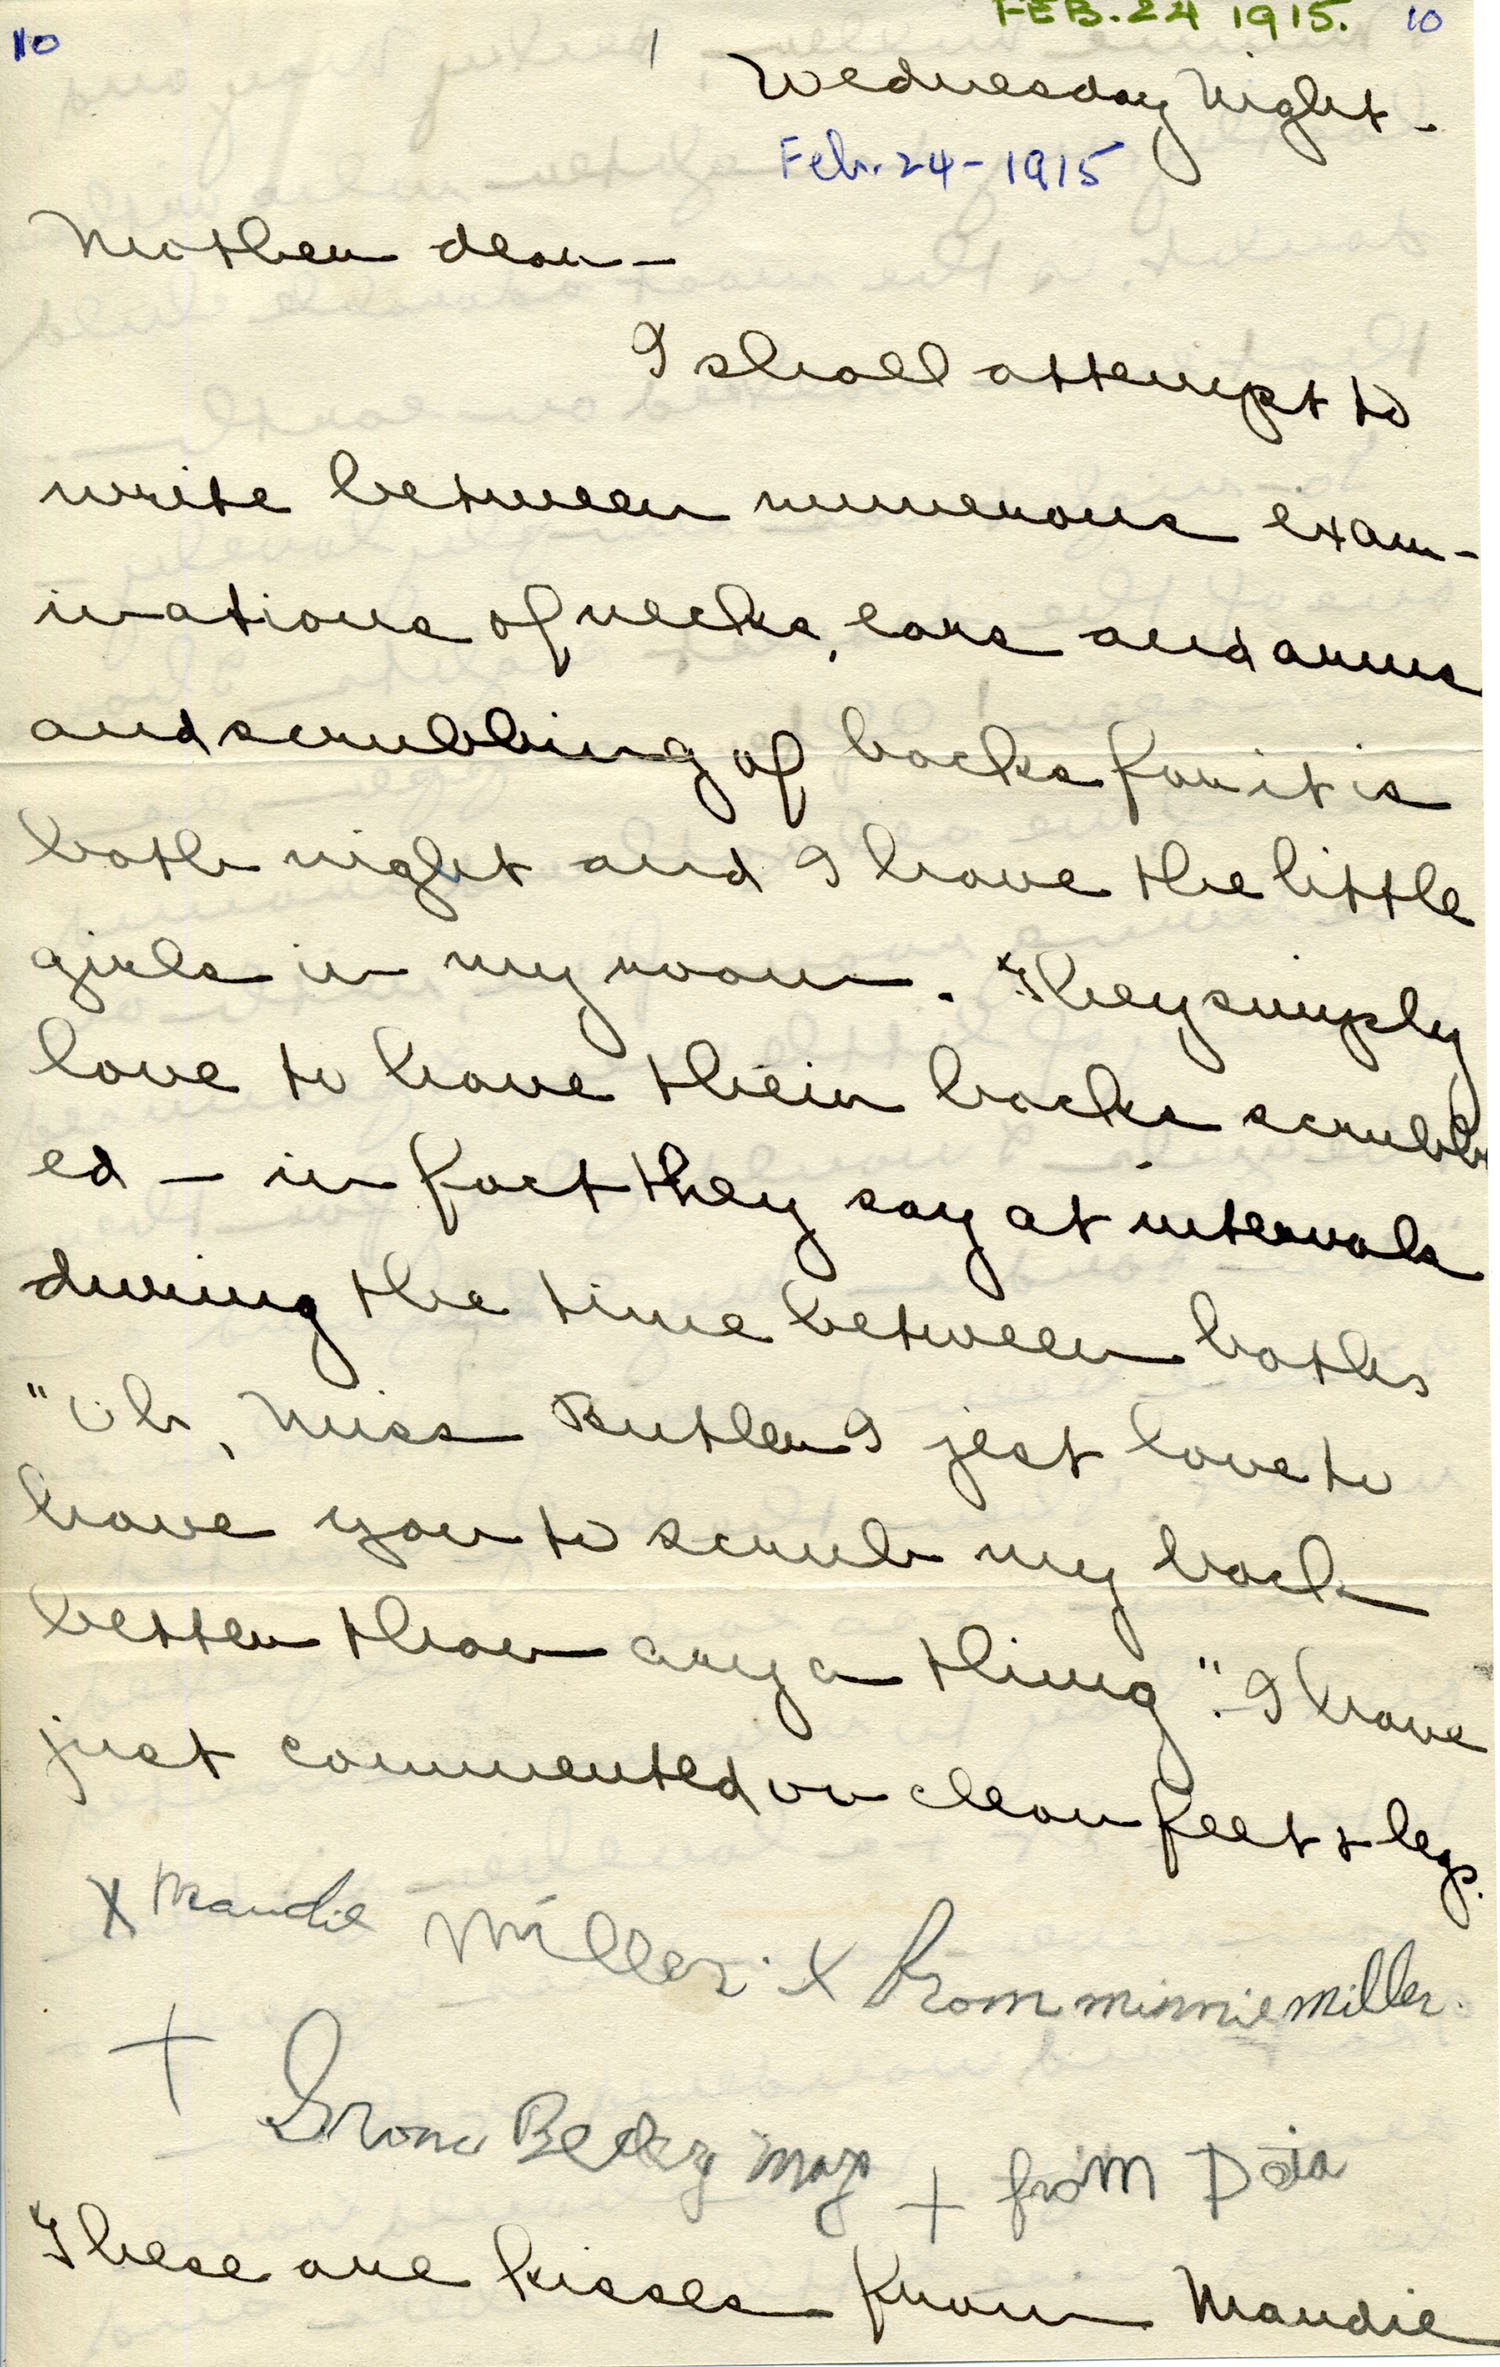 FEB. 24 1915.
10 10
1
Wednesday Night -
Feb. 24 - 1915
Mother dear -
I shall attempt to
write between numerous exam-
inations of necks, ears and arms
and scrubbing of backs for it is
bath night and I have the little
girls in my room. They simply
love to have their backs scrubb
ed - in fact they say at intervals
during the time between baths
"Oh, Miss Ruther I jest love to
have you to scrub my back
better than any a thing". I have
just commented on clean feet + legs.
X Maudie Miller. X From Minnie Miller.
+ From Betzy May + from Dola
These are kisses from Maudie